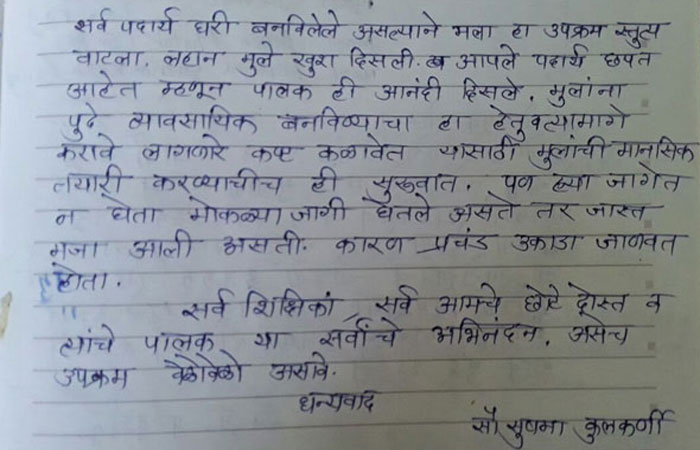 सर्व पदार्थ घरी बनविलेले असल्याने मला हा उपक्रम स्तुत्य
वाटला. लहान मुले खुश दिसली. आपले पदार्थ छपत
आहेत म्हणून पालक ही आनंदी दिसले. मुलांना
पुढे व्यावसायिक बनविण्याचा हा हेतु वत्यामागे
करावे लागणारे कष्ट कळावेत यासाठी मुलांची मानसिक
तयारी करण्याचीच ही सुरुवात. पण ह्या जागेत
न घेता मोकळ्या जागी घेतले असते तर जास्त
मजा आली असती. कारण प्रचंड उकाडा जाणवत
होता.
सर्व शिक्षिका, सर्व आमचे छोटे दोस्त व
त्यांचे पालक या सर्वांचे अभिनंदन. असेच
उपक्रम वेळोवेळी असावे.
धन्यवाद
सौ सुषमा कुलकर्णी